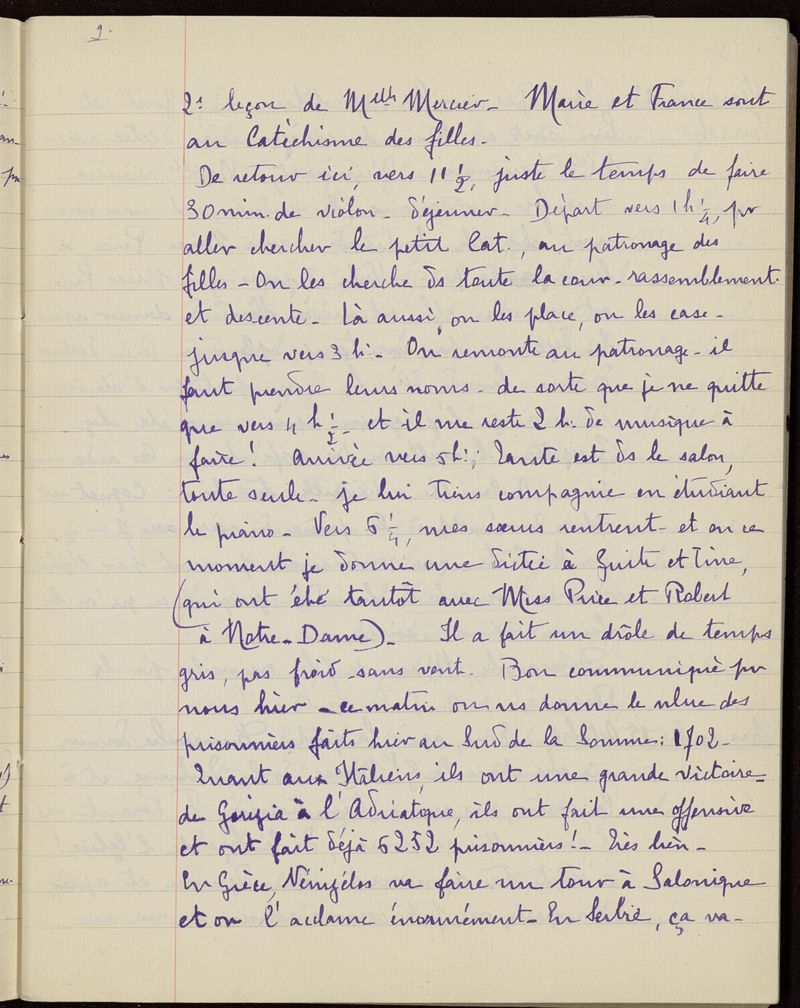 9.
2e leçon de Melle Mercier - Marie et France sont
au Catéchisme des filles.
De retour ici, vers 11 1/2, juste le temps de faire
30 min. de violon - déjeuner - Départ vers 1h 1/4, pr
aller chercher le petit Cat., au patronage des
filles - On les cherche ds toute la cour - rassemblement
et descente. Là aussi, on les place, on les case -
jusque vers 3 h. - On remonte au patronage - il
faut prendre leurs noms - de sorte que je ne quitte
que vers 4 h 1/2 - et il me reste 2 h. de musique à
faire! Arrivée vers 5h.; Tante est ds le salon,
toute seule - je lui tiens compagnie en étudiant
le piano - Vers 6 1/4, mes sœurs rentrent - et en ce
moment je donne une dictée à Guite et Tine,
(qui ont été tantôt avec Miss Price et Robert
à Notre-Dame) - Il a fait un drôle de temps
gris, pas froid - sans vent - Bon communiqué pr
nous hier - ce matin on ns donne le nbre des
prisonniers faits hier au Sud de la Somme: 1702 -
Quant aux Italiens, ils ont une grande victoire -
de Gorizia à l'Adriatique, ils ont fait une offensive
et ont fait déjà 5252 prisonniers! - Très bien -
En Grèce, Vénizélos va faire un tour à Salonique
et on l'acclame énormément - En Serbie, ça va -